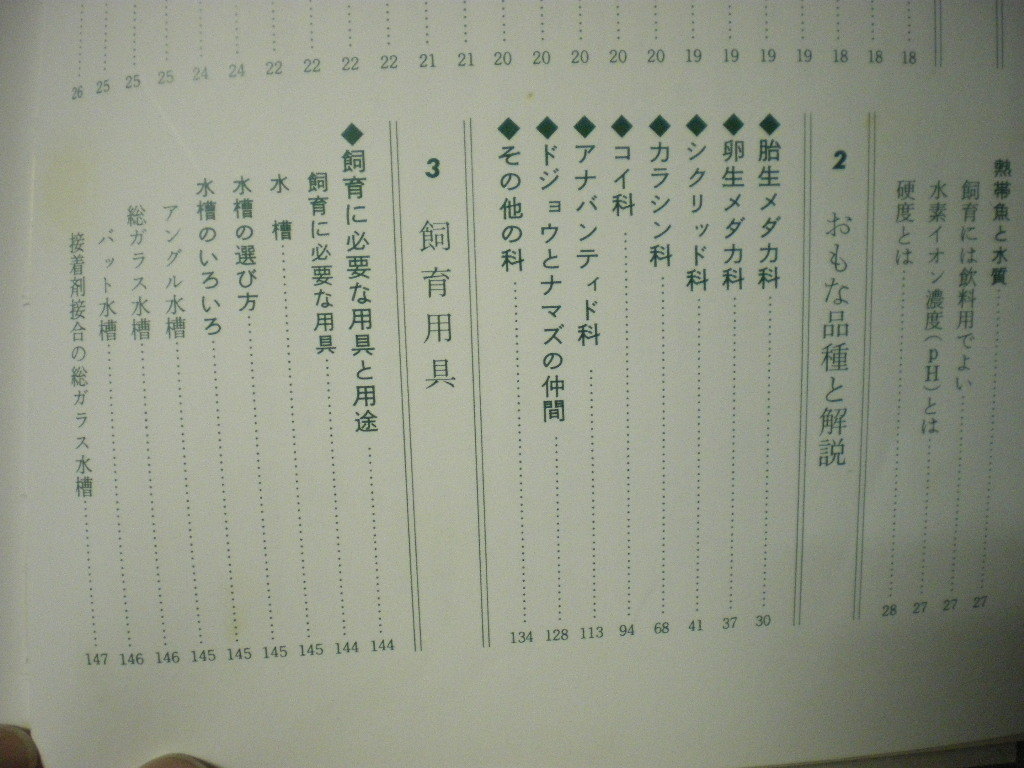 18
18
18
19
19
19
19
20
20
20
20
20
21
21
22
22
22
22
24
24
25
25
25
26
熱帯魚と水質 27
飼育には飲料用でよい 27
水素イオン濃度(pH)とは 27
硬度とは 28
2 おもな品種と解説
◆胎生メダカ科 30
◆卵生メダカ科 37
◆シクリッド科 41
◆カラシン科 68
◆コイ科 94
◆アナバンティド科 113
◆ドジョウとナマズの仲間 128
◆その他の科 134
3 飼育用具
◆飼育に必要な用具と用途 144
飼育に必要な用具 144
水槽 145
水槽の選び方 145
水槽のいろいろ 145
アングル水槽 146
総ガラス水槽 146
バット水槽 147
接着剤接合の総ガラス水槽